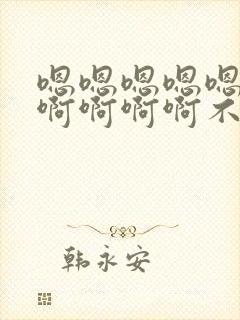 嗯嗯嗯嗯嗯
啊啊啊啊不
韩永安